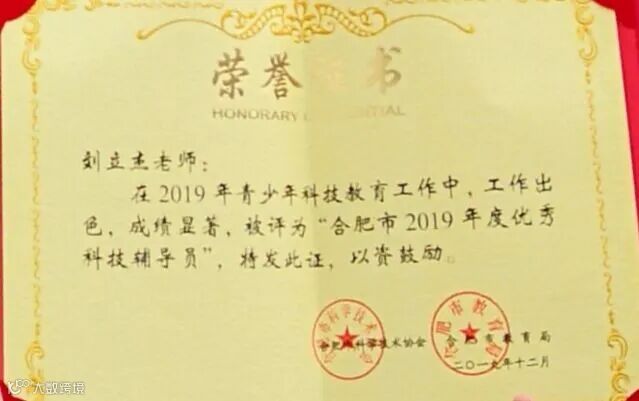 荣誉证书
HONORARY CREDENTIAL
刘立杰老师：
在2019年青少年科技教育工作中，工作出
色，成绩显著，被评为“合肥市2019年度优秀
科技辅导员”，特发此证，以资鼓励。
合肥市科学技术协会 合肥市教育局
二〇一九年十二月
大数跨境